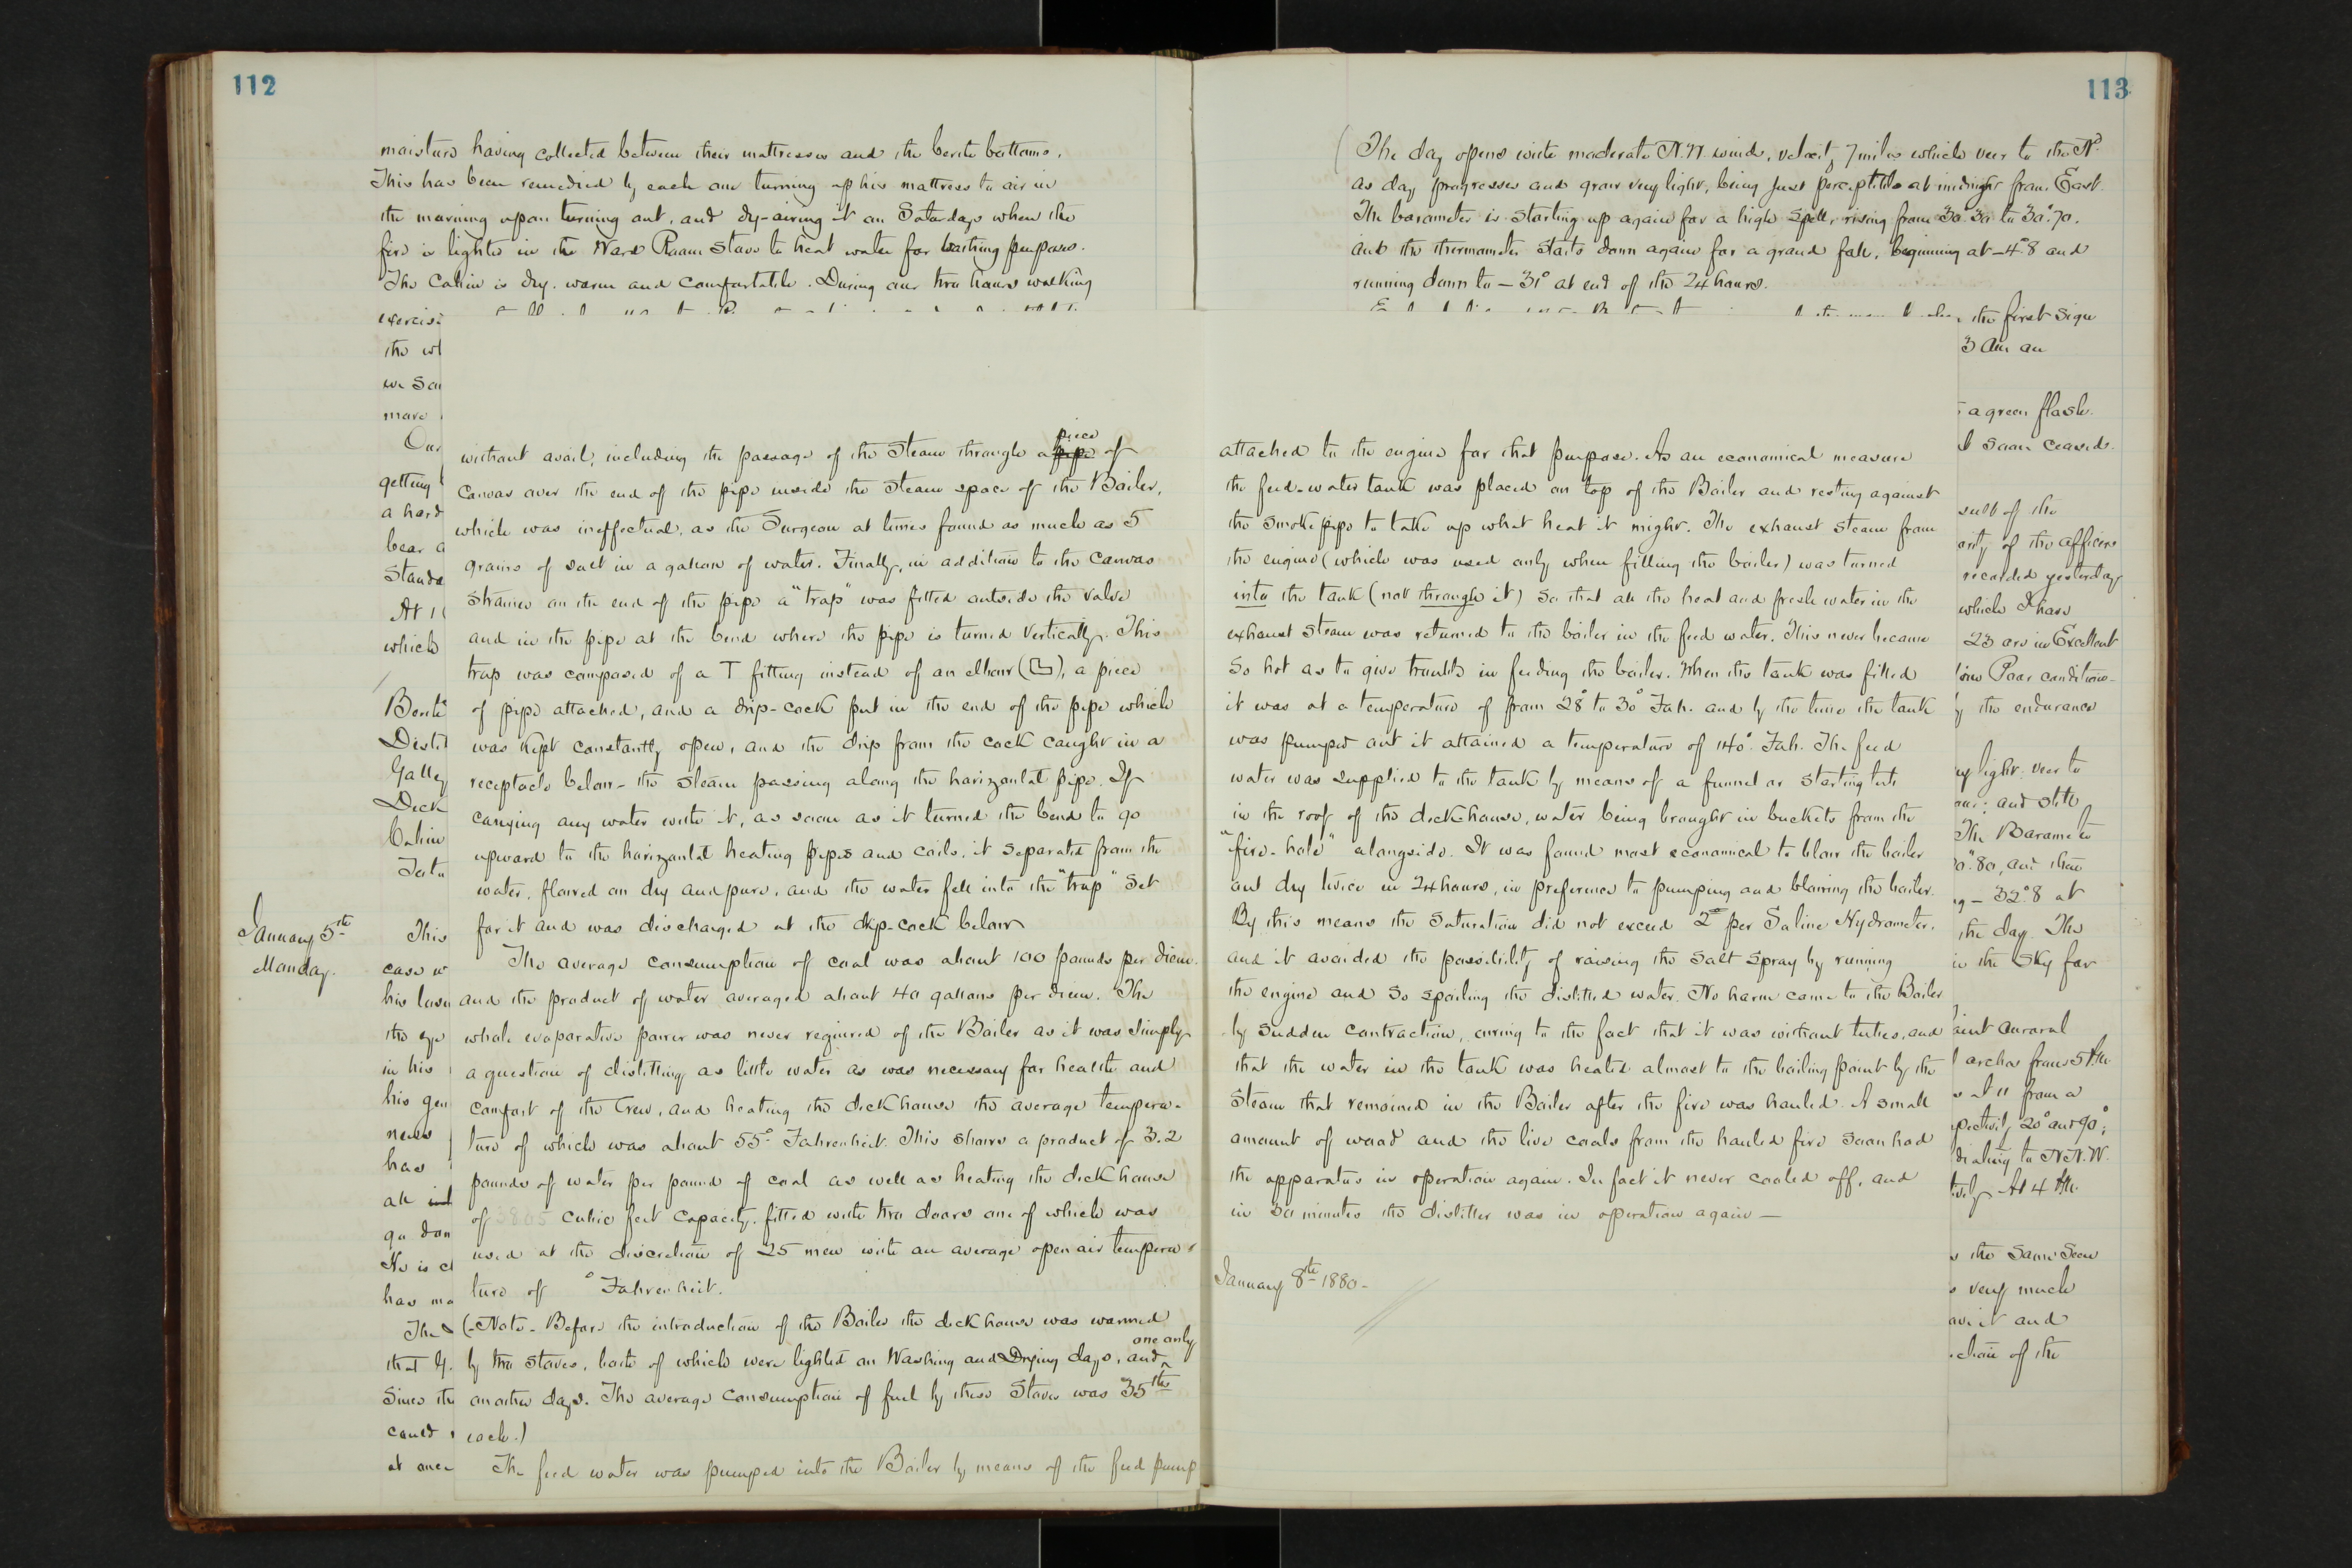 112
moisture having collected between their mattresses and the berth bottoms.
This has been remedied by each one turning up his mattress to air in
the morning upon turning out, and dry-airing it on Saturdays when the
fire is lighted in the Ward Room stove to heat water for bathing purposes.
The Cabin is dry, warm and comfortable. During our two hours walking
exercise
the wh
we sa
more
Our
getting
a hard
bear a
Standa
At 1
which
Berth
Distil
Galley
Deck
Cabin
Tota
January 5th
Monday.
This
case w
his lasu
the eye
in his
his gen
news
has
all
go down
He is cl
has ma
The
that G.
Since the
could
at once
without avail, including the passage of the Steam through a pipe piece of
Canvas over the end of the pipe inside the Steam space of the Boiler,
which was ineffectual, as the Surgeon at times found as much as 5
grains of salt in a gallon of water. Finally, in addition to the canvas
strainer on the end of the pipe a "trap" was fitted outside the valve
and in the pipe at the bend where the pipe is turned vertically. This
trap was composed of a T fitting instead of an elbow ( ), a piece
of pipe attached, and a drip-cock put in the end of the pipe which
was kept constantly open, and the drip from the cock caught in a
receptacle below - the steam passing along the horizontal pipe. If
carrying any water with it, as soon as it turned the bend to go
upward to the horizontal heating pipes and coils, it separated from the
water, flowed on dry and pure, and the water fell into the "trap" set
for it and was discharged at the drip-cock below
The average consumption of coal was about 100 pounds per diem.
and the product of water averaged about 40 gallons per diem. The
whole evaporative power was never required of the Boiler as it was simply
a question of distilling as little water as was necessary for health and
comfort of the Crew, and heating the deckhouse the average tempera-
ture of which was about 55° Fahrenheit. This shows a product of 3.2
pounds of water per pound of coal as well as heating the deckhouse
of 3805 cubic feet capacity, fitted with two doors one of which was
used at the discretion of 25 men with an average open air tempera-
ture of ° Fahrenheit.
(-Note- Before the introduction of the Boiler the deckhouse was warmed
by two stoves, both of which were lighted on Washing and Drying days, and one only
on other days. The average consumption of fuel by these Stoves was 35 lbs
each.)
The feed water was pumped into the Boiler by means of the feed pump
113
The day opens with moderate N.W. wind, velocity 7 miles which veer to the Nd
as day progresses and grow very light, being just perceptible at midnight from East.
The barometer is starting up again for a high spell, rising from 30.30 to 30.70.
and the thermometer starts down again for a grand fall, beginning at -4.°8 and
running down to -31° at end of the 24 hours.
the first sign
3 AM an
a green flash.
soon ceased.
sult of the
ority of the officers
recorded yesterday
which I have
23 are in Excellent
Poor condition-
the endurance
light: veer to
and still
The Barometer
0".80, and then
- 32.°8 at
the day. The
in the sky for
aint auroral
arches from 5 PM
at 11 from a
pectively 20° and 90°;
diating to N.N.W.
tively - At 4 PM
the same seen
very much
ave it and
of the
attached to the engine for that purpose. As an economical measure
the feed-water tank was placed on top of the Boiler and resting against
the smoke pipe to take up what heat it might. The exhaust steam from
the engine (which was used only when filling the boiler) was turned
into the tank (not through it) so that all the heat and fresh water in the
exhaust steam was returned to the boiler in the feed water. This never became
so hot as to give trouble in feeding the boiler. When the tank was filled
it was at a temperature of from 28° to 30° Fah. and by the time the tank
was pumped out it attained a temperature of 140° Fah. The feed
water was supplied to the tank by means of a funnel or starting tub
in the roof of the deckhouse, water being brought in buckets from the
"fire-hole" alongside. It was found most economical to blow the boiler
out dry twice in 24 hours, in preference to pumping and blowing the boiler.
By this means the saturation did not exceed 2° per Saline Hydrometer,
and it avoided the possibility of raising the salt spray by running
the engine and so spoiling the distilled water. No harm came to the Boiler
by sudden contraction, owing to the fact that it was without tubes, and
that the water in the tank was heated almost to the boiling point by the
steam that remained in the Boiler after the fire was hauled. A small
amount of wood and the live coals from the hauled fire soon had
the apparatus in operation again. In fact it never cooled off, and
in 30 minutes the distiller was in operation again —
January 8th 1880-